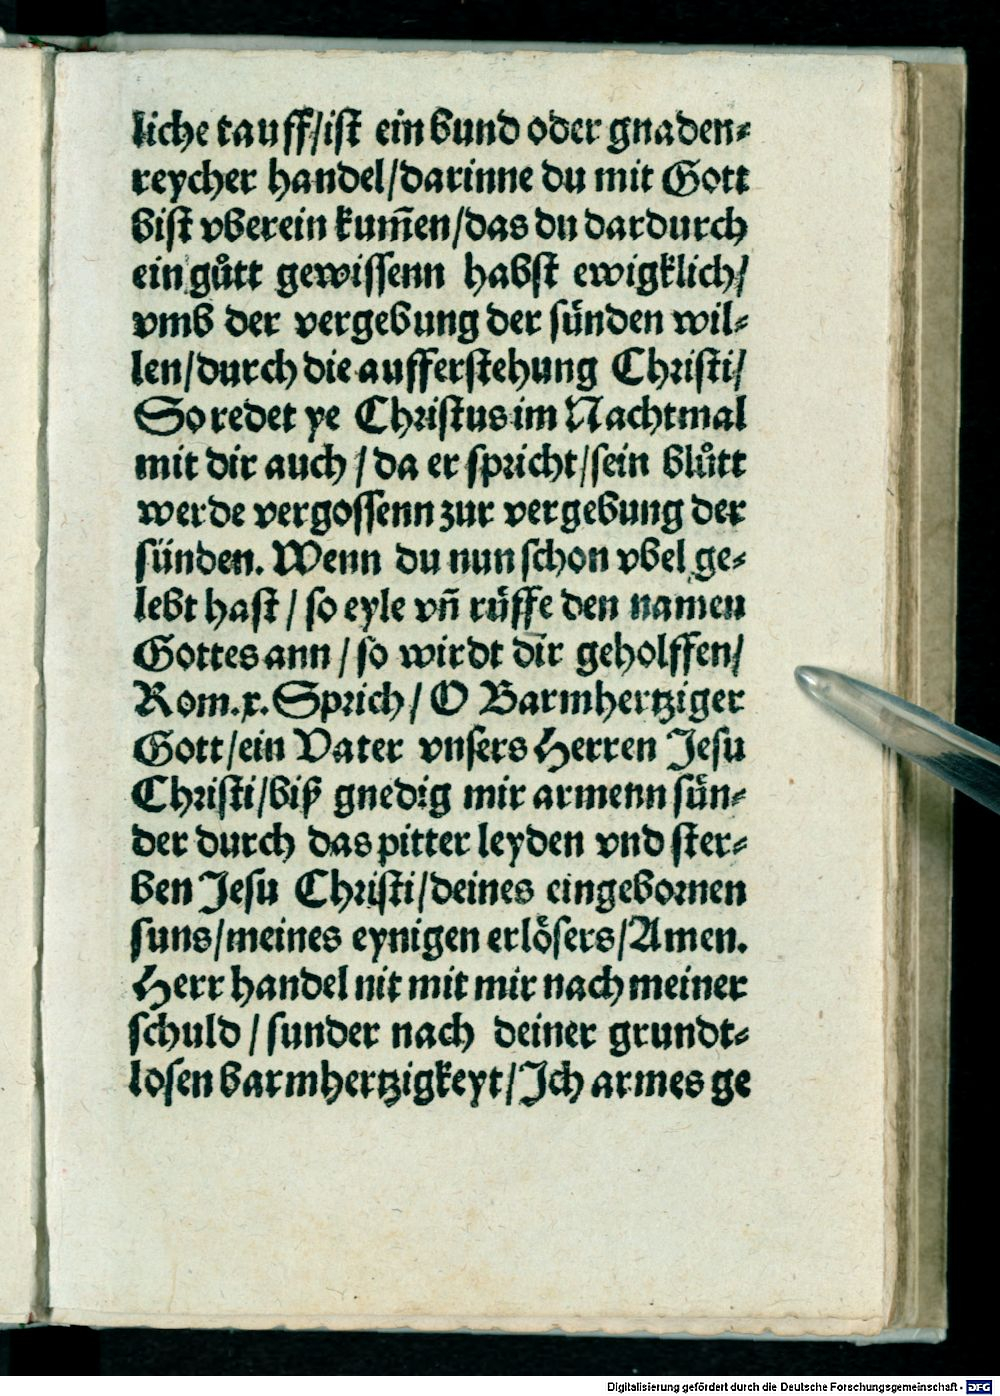 liche tauff/ist ein bund oder gnaden⸗
reycher handel/darinne du mit Gott
bist vberein kum̃en/das du dardurch
ein gůtt gewissenn habst ewigklich/
vmb der vergebung der sünden wil⸗
len/durch die aufferstehung Christi/
So redet ye Christus im Nachtmal
mit dir auch / da er spricht/sein blůtt
werde vergossenn zur vergebung der
sünden. Wenn du nun schon vbel ge⸗
lebt hast / so eyle vñ rüffe den namen
Gottes ann / so wirdt dir geholffen/
Rom.x. Sprich / O Barmhertziger
Gott/ein Vater vnsers Herren Jesu
Christi/biß gnedig mir armenn sün⸗
der durch das pitter leyden vnd ster⸗
ben Jesu Christi/deines eingebornen
suns/meines eynigen erlösers/Amen.
Herr handel nit mit mir nach meiner
schuld / sunder nach deiner grundt⸗
losen barmhertzigkeyt/Ich armes ge
Digitalisierung gefördert durch die Deutsche Forschungsgemeinschaft - DFG